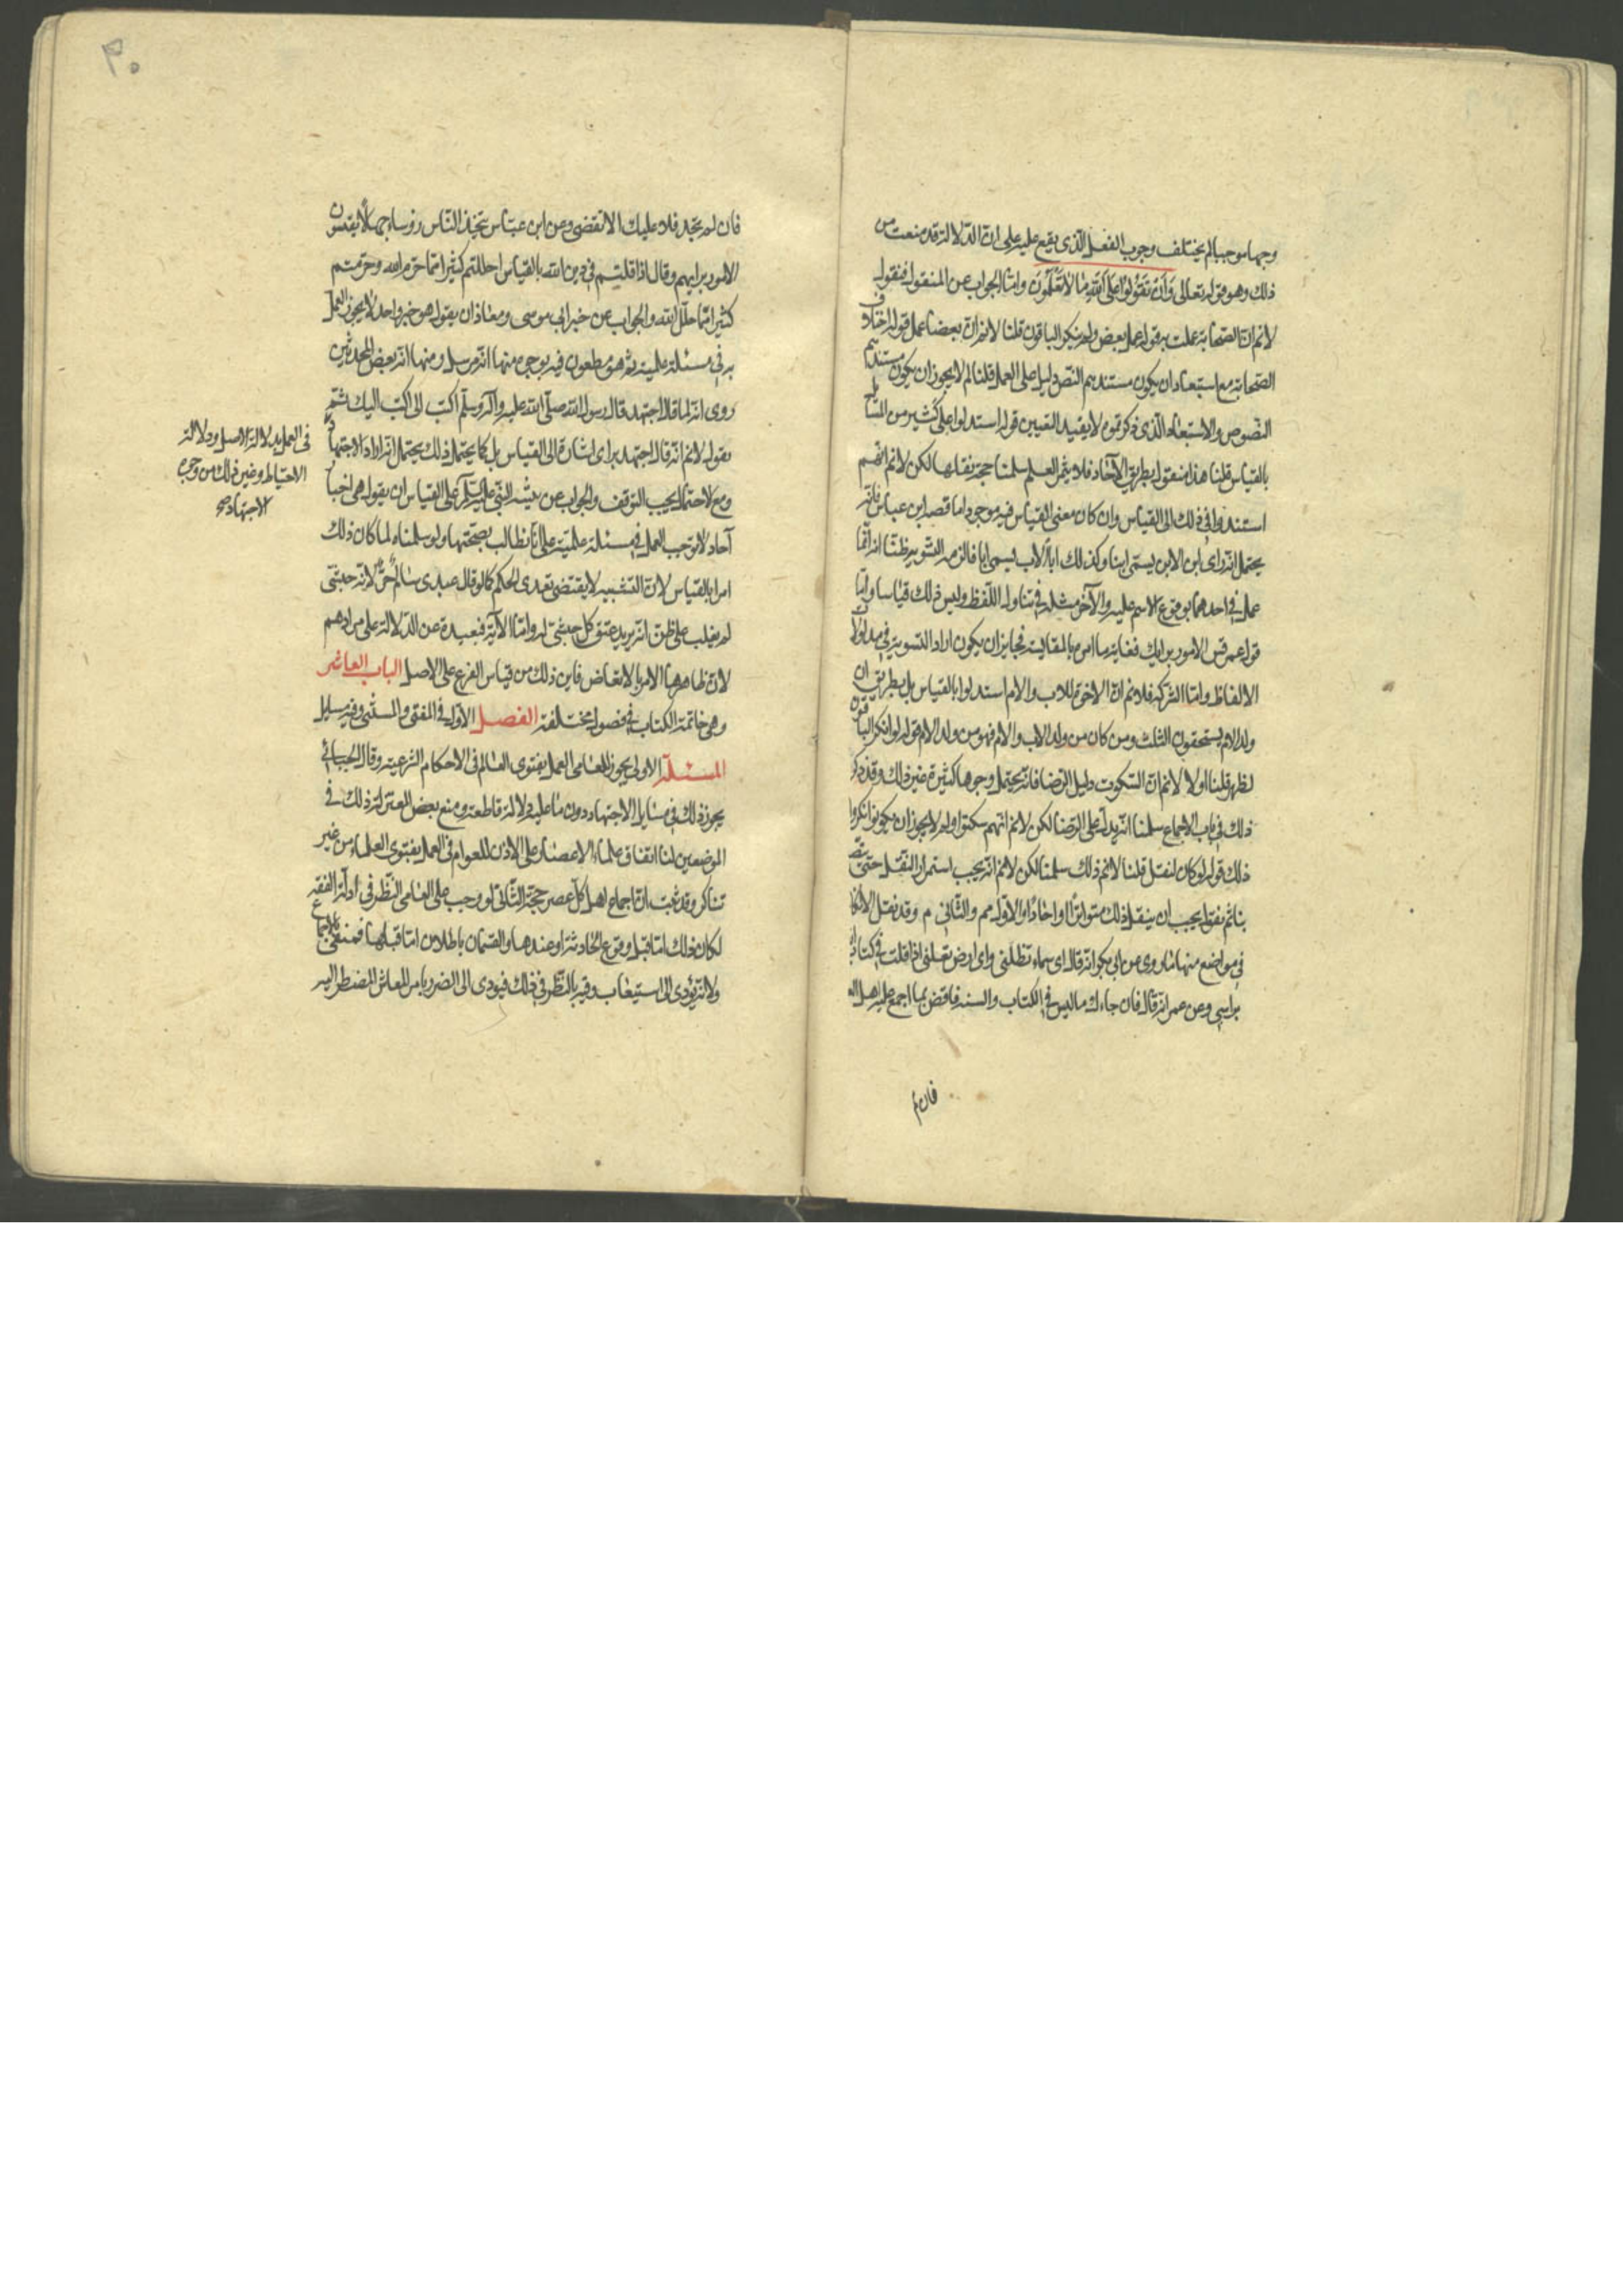 وجها موجبا لم يختلف وجوب الفعل الذى يقع عليه على ان الدلالة قد منعت من
ذلك وهو قوله تعالى وَاَنْ تَقُولُوا عَلَى اللهِ مَا لَا تَعْلَمُونَ واما الجواب عن المنقول فنقول
لانم ان الصحابة عملت به قوله عمل بعض ولم ينكر الباقون قلنا لانم ان بعضا عمل قوله اختلاف
الصحابة مع استبعاد ان يكون مستندهم النص دليل على العمل قلنا لم لا يجوز ان يكون مستندهم
النصوص والاستبعاد الذى ذكرتموه لا يفيد اليقين قوله استدلوا على كثير من المسايل
بالقياس قلنا هذا منقول بطريق الآحاد فلا يثمر العلم سلمنا حجة نقلها لكن لانم انهم
استندوا فى ذلك الى القياس وان كان معنى القياس فيه موجودا ما قصه ابن عباس فانه
يحتمل انه راى ابن الابن يسمى ابنا وكذلك اباً لاب يسمى ابا فالزمه التسوية ظنا انه انما
عمل فى احدهما بوقوع الاسم عليه والآخر مثله فى تناول اللفظ وليس ذلك قياسا واما
قول عمر قس الامور برايك فغايته ما امر بالمقايسة فجايز ان يكون اراد التسوية فى مدلولات
الالفاظ واما الشركة فلا نم ان الاخوة للاب والام استدلوا بالقياس بل بطريق ان
ولد الام يستحقون الثلث ومن كان من ولد الاب والام فهو من ولد الام قوله لو انكر الباقون
لظهر قلنا اولا لانم ان السكوت دليل الرضا فانه يحتمل وجوها كثيرة غير ذلك وقد ذكر
ذلك فى باب الاجماع سلمنا انه يدل على الرضا لكن لانم انهم سكتوا ولم لا يجوز ان يكونوا انكروا
ذلك قوله لو كان لنقل قلنا لانم ذلك سلمنا لكن لانم انه يجب استمرار النقل حتى يتصل
بنا ثم نقول يجب ان ينقل ذلك متواترًا او احادًا والاول مم والثانى م وقد نقل الانكار
فى مواضع منها ما روى عن ابى بكر انه قال اى سماء تظلنى واى ارض تقلنى اذا قلت فى كتاب الله
برايى وعن عمر انه قال فان جاءك ما ليس فى الكتاب والسنة فاقض بما اجمع عليه اهل العلم
فان لم
۴۰
فان لم تجد فلا عليك الا تقضى وعن ابن عباس يتخذ الناس رؤساء جهالًا يقيسون
الامور برايهم وقال اذا قلتم فى دين الله بالقياس احللتم كثيرا مما حرم الله وحرمتم
كثيرا مما حلل الله والجواب عن خبر ابى موسى ومعاذ ان يقول هو خبر واحد لا يجوز العمل
به فى مسئلة علمية ثم هو مطعون فيه بوجوه منها انه مرسل ومنها انه بعض المحدثين
روى انه لما قال اجتهد قال رسول الله صلى الله عليه وآله وسلم اكتب الى اكتب اليك ثم
نقول لانم انه قال اجتهد براى اشارة الى القياس بل كما يحتمل ذلك يحتمل انه اراد الاجتهاد
فى العمل بدلالة الاصل ودلالة
الاحتياط وغير ذلك من وجوه
الاجتهاد صح
ومع الاحتمال يجب التوقف والجواب عن تنبيه النبى عليه السلم على القياس ان يقول هى اخبار
آحاد لا توجب العمل فى مسئلة علمية على انا نطالب بصحتها ولو سلمناه لما كان ذلك
امرا بالقياس لان التشبيه لا يقتضى تعدى الحكم كما لو قال عبدى سالم حرٌّ لانه حبشى
لم يغلب على ظن انه يريد عتق كل حبشى له واما الآية فبعيدة عن الدلالة على مرادهم
لان ظاهرها الامر بالاتعاض فاين ذلك من قياس الفرع على الاصل الباب العاشر
وهى خاتمة الكتاب فى فصول مختلفة الفصل الاول فى المفتى والمستفتى وفيه مسايل
المسئلة الاولى يجوز للعامى العمل بفتوى العالم فى الاحكام الشرعية وقال الجبائى
يجوز ذلك فى مسايل الاجتهاد دون ما عليه دلالة قاطعة ومنع بعض المعتزلة ذلك فى
الموضعين لنا اتفاق علماء الاعصار على الاذن للعوام فى العمل بفتوى العلماء من غير
تناكر وقد ثبت ان اجماع اهل كل عصر حجة الثانى لو وجب على العامى النظر فى ادلة الفقه
لكان ذلك اما قبل وقوع الحادثة او عندها والقسمان باطلان اما قبلها فمنفى بالاجماع
ولانه يؤدى الى استيعاب وقته بالنظر فى ذلك فيودى الى الضرر بامر المعاش المضطر اليه